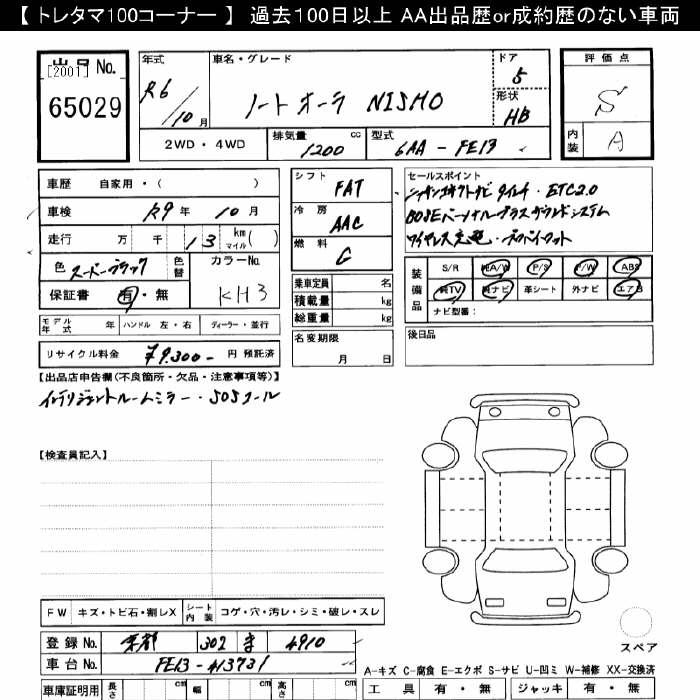 【 トレタマ100コーナー 】 過去100日以上 AA出品歴or成約歴のない車両
出品 No.
[2001]
65029
年式
R6/10月
車名・グレード
ノートオーラ NISMO
ドア
5
形状
HB
2WD・4WD
排気量 1200 cc
型式 6AA-FE13
評価点
S
内装
A
車歴 自家用・( )
車検 R9年 10月
走行 万 千 13 km マイル( )
色 スーパーブラック
色替
カラーNo.
KH3
保証書 有・無
モデル年式 年 ハンドル 左・右 ディーラー・並行
リサイクル料金 ¥9,300- 円 預託済
シフト FAT
冷房 AAC
燃料 G
乗車定員 名
積載量 kg
総重量 kg
名変期限
月 日
セールスポイント
ニッサンコネクトナビ 9インチ・ETC2.0
BOSEパーソナルプラスサウンドシステム
ワイヤレス充電・プロパイロット
装備品
S/R 純A/W P/S P/W ABS
純TV 純ナビ 革シート 外ナビ エアB
ナビ型番:
後日品
【出品店申告欄(不良箇所・欠品・注意事項等)】
インテリジェントルームミラー・SOSコール
【検査員記入】
FW キズ・トビ石・割レX
シート内装 コゲ・穴・汚レ・シミ・破レ・スレ
登録 No. 京都 302 4910
車台 No. FE13-413731
車庫証明用 長さ cm 幅 cm 高さ cm
スペア
A-キズ C-腐食 E-エクボ S-サビ U-凹ミ W-補修 XX-交換済
工具 有・無 ジャッキ 有・無